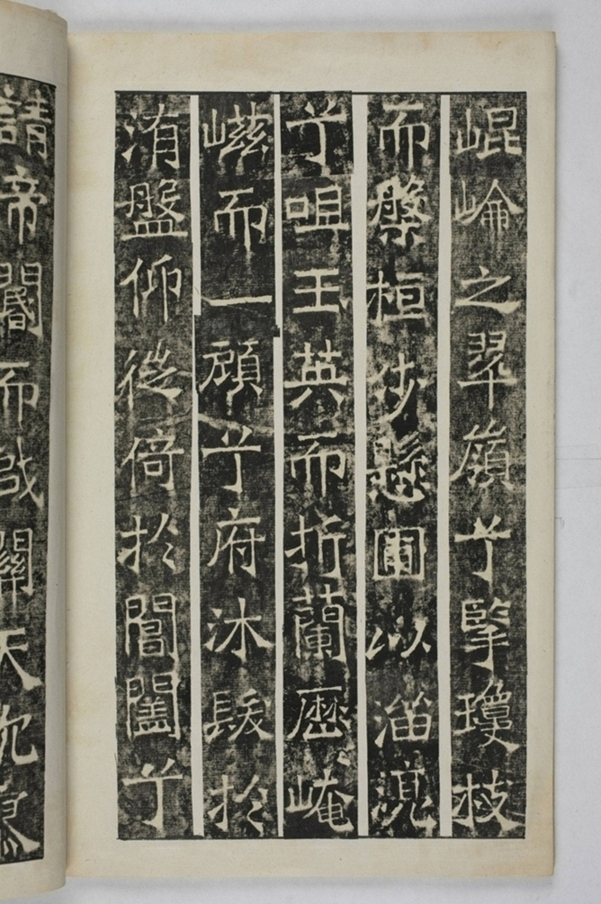 崐崘之翠嶺兮擥瓊枝
而槃桓步懸圃以溜滉
兮咀玉英而折蘭歷崦
嵫而一顧兮府沐髮於
洧盤仰徙倚於閶闔兮
請帝閽而啟關天